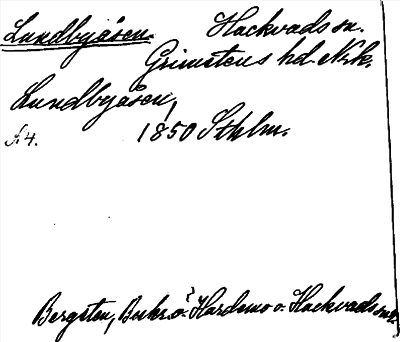 Lundbyåsen. Hackvads sn.
Grimstens hd. Nrk.
Lundbyåsen,
f. 4. 1850 Sthlm.
Bergsten, Beskr. ö. Hardemo o. Hackvads snr.